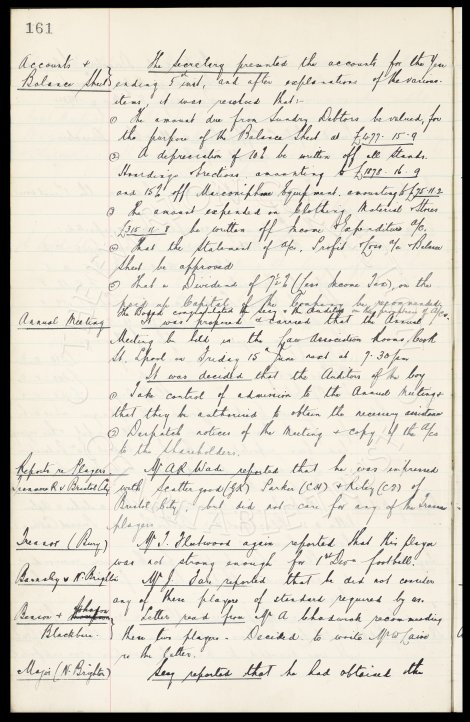 161
Accounts &
Balance Sheet
The Secretary presented the accounts for the Year
ending 5th inst, and after explanations of the various
items, it was resolved that:-
① The amount due from Sundry Debtors be valued, for
the purpose of the Balance Sheet at £477-15-9
② A depreciation of 10% be written off all Stands,
Hoardings & Erections, amounting to £1878.16.9
and 15% off Marconiphone Equipment, amounting to £75.11.2
③ The amount expended on Clothing, Material & Stores
£315.11.8 be written off Income & Expenditure a/c.
④ That the Statement of a/cs, Profit & Loss a/c & Balance
Sheet be approved
⑤ That a Dividend of 7½% (Less Income Tax), on the
paid up Capital of the Company be recommended.
The Board congratulated the Secy & the Auditors on the preparation of a/cs.
Annual Meeting
It was proposed & carried that the Annual
Meeting be held in the Law Association Rooms, Cook
St. Lpool on Friday 15th June next at 7.30 pm
It was decided that the Auditors of the Coy
① Take control of admission to the Annual Meeting &
that they be authorised to obtain the necessary assistance
② Despatch notices of the Meeting & copy of the a/cs
to the Shareholders.
Reports re Players
Tranmere R v Bristol City
Mr A.R. Wade reported that he was impressed
with Scattergood (GK) Parker (CH) & Riley (CF) of
Bristol City, but did not care for any of the Tranmere
players
Trevor (Bury)
Mr J. Fleetwood again reported that this player
was not strong enough for 1st Div football.
Barnsley v N. Brighton
Mr J. Fare reported that he did not consider
any of these players of standard required by us.
Benson & Johnson
Blackburn.
Letter read from Mr A Chadwick recommending
these two players. Decided to write Mr W Caine
re the latter.
Major (N. Brighton)
Secy reported that he had obtained the